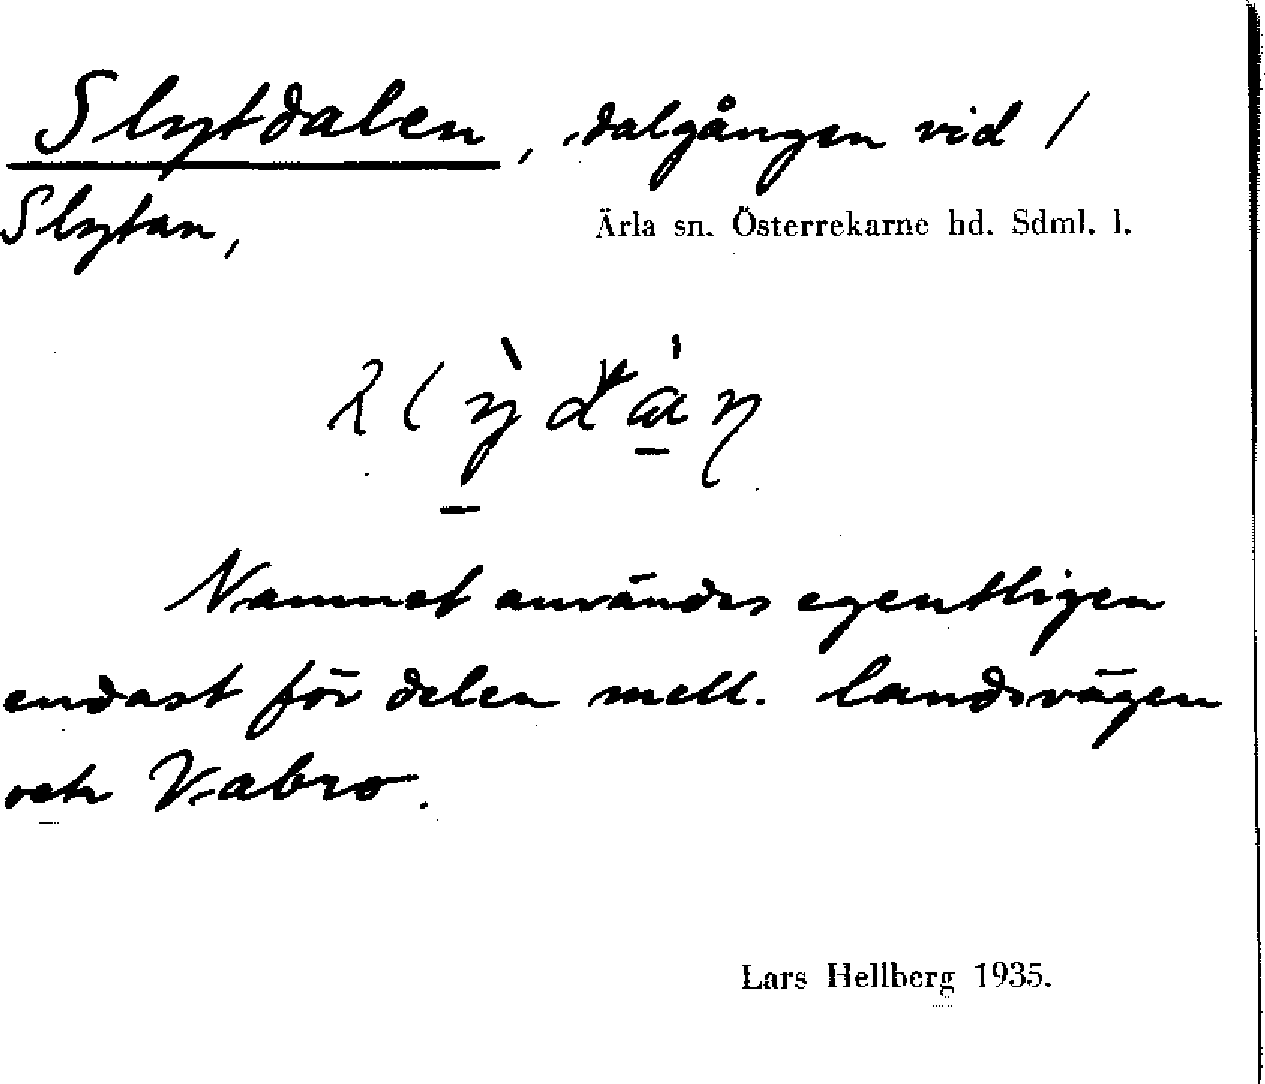 Slytdalen, dalgången vid /
Slytan,
Ärla sn. Österrekarne hd. Sdml. l.
Namnet användes egentligen
endast för delen mell. landsvägen
och Vabro.
Lars Hellberg 1935.